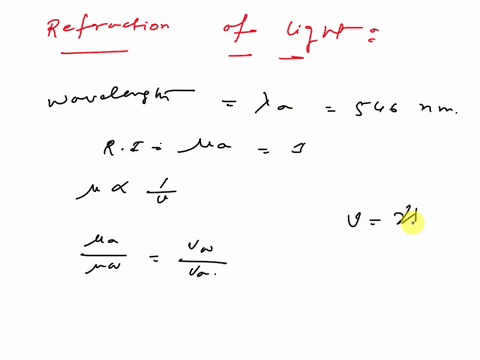 Refraction of light:
Wavelenght = λa = 546 nm.
R.I = μa = 1
μ ∝ 1/v
v =
μa/μw = vw/va.